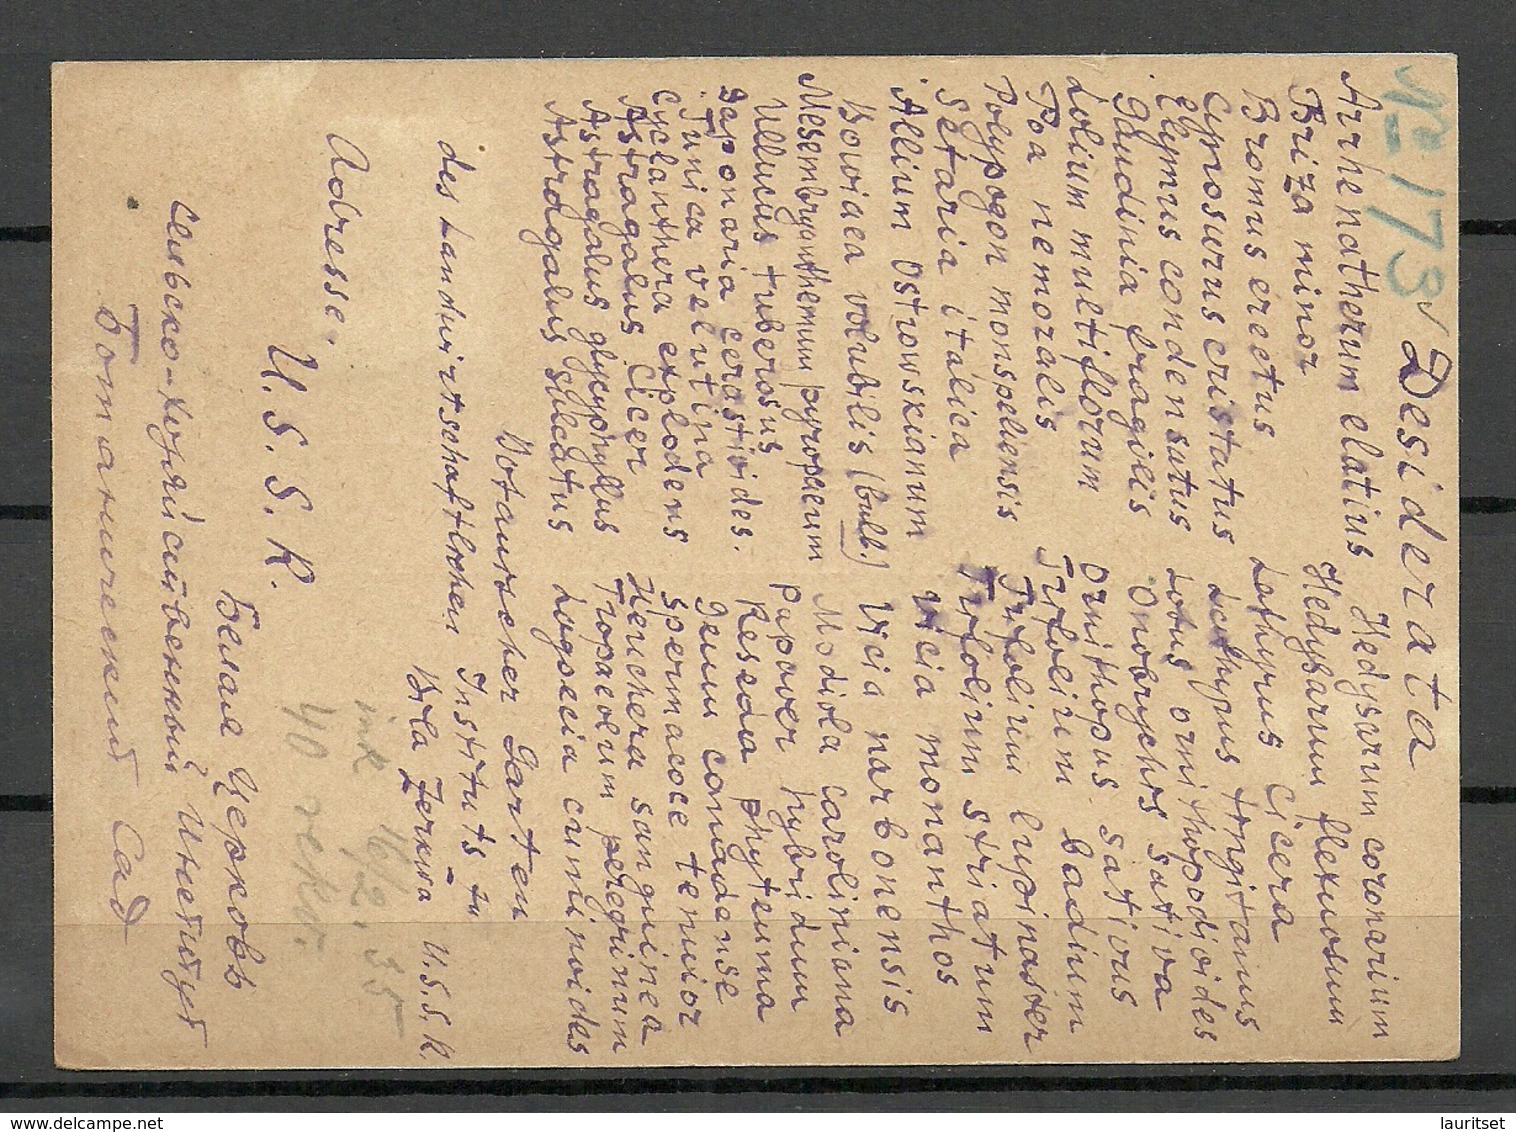 № 173
Desiderata
Arrhenatherum elatius
Briza minor
Bromus erectus
Cynosurus cristatus
Elymus condensatus
Gaudinia fragilis
Lolium multiflorum
Poa nemoralis
Polypogon monspeliensis
Setaria italica
Allium Ostrowskianum
Bowiaea volubilis (bulb.)
Mesembryanthemum pyropaeum
Ullucus tuberosus
Saponaria cerastioides.
Tunica velutina
Cyclanthera explodens
Astragalus Cicer
Astragalus glycyphyllus
Astragalus sulcatus
Hedysarum coronarium
Hedysarum flexuosum
Lathyrus Cicera
Lathyrus tingitanus
Lotus ornithopodioides
Onobrychis sativa
Ornithopus sativus
Trifolium badium
Trifolium lupinaster
Trifolium striatum
Vicia monanthos
Vicia narbonensis
Modiola caroliniana
Papaver hybridum
Reseda phyteuma
Geum canadense
Spermacoce tenuior
Heuchera sanguinea
Tropaeolum peregrinum
Lagoecia cuminoides
Botanischer Garten
des Landwirtschaftlichen Instituts zu
Bila Zerkwa U.S.S.R.
Adresse:
U. S. S. R.
Белая Церковь
Сельско-хозяйственный Институт
Ботанический Сад
ink 16/2.35
40
lauritset